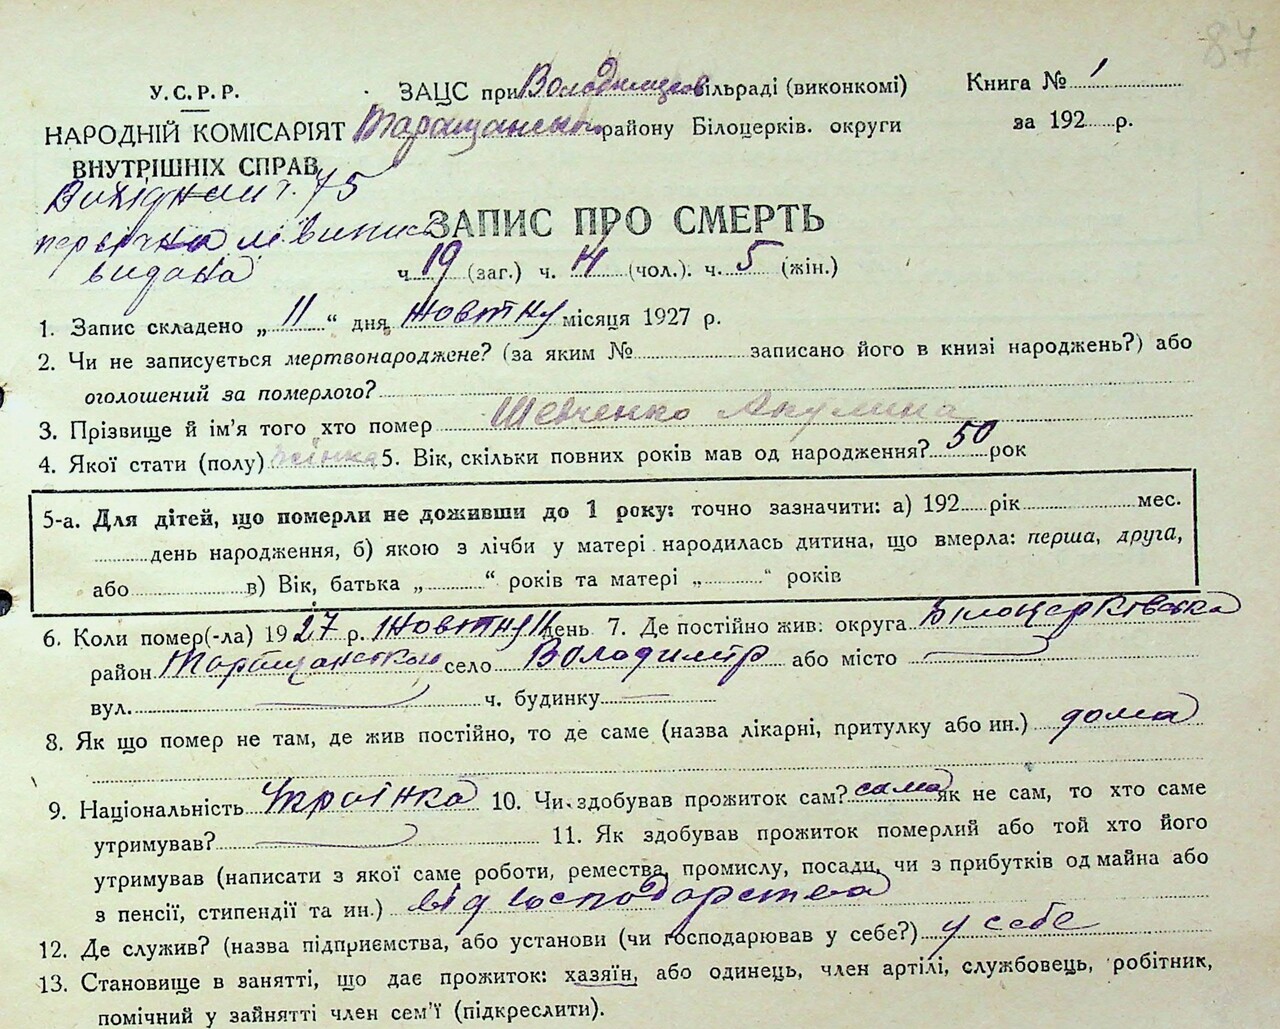 87
У.С.Р.Р.
НАРОДНІЙ КОМІСАРІЯТ
ВНУТРІШНІХ СПРАВ
ЗАЦС при Володимирській сільраді (виконкомі)
Таращанського району Білоцерків. округи
Книга № 1
за 192 р.
75
виписка
видана
ЗАПИС ПРО СМЕРТЬ
ч. 19 (заг.) ч. 14 (чол.). ч. 5 (жін.)
1. Запис складено „ 11 “ дня жовтня місяця 1927 р.
2. Чи не записується мертвонароджене? (за яким № записано його в книзі народжень?) або
оголошений за померлого?
3. Прізвище й ім'я того хто помер Шевченко Акулина
4. Якої стати (полу) жінка 5. Вік, скільки повних років мав од народження? 50 рок
5-а. Для дітей, що померли не доживши до 1 року: точно зазначити: а) 192 рік мес.
день народження, б) якою з лічби у матері народилась дитина, що вмерла: перша, друга,
або в) Вік, батька „ “ років та матері „ “ років
6. Коли помер(-ла) 1927 р. Жовтня 11 день 7. Де постійно жив: округа Білоцерківська
район Таращанський село Володимир або місто
вул. ч. будинку
8. Як що помер не там, де жив постійно, то де саме (назва лікарні, притулку або ин.) дома
9. Національність Українка 10. Чи здобував прожиток сам? сама як не сам, то хто саме
утримував? 11. Як здобував прожиток померлий або той хто його
утримував (написати з якої саме роботи, ремества, промислу, посади, чи з прибутків од майна або
з пенсії, стипендії та ин.) від господарства
12. Де служив? (назва підприємства, або установи (чи господарював у себе?) у себе
13. Становище в занятті, що дає прожиток: хазяїн, або одинець, член артілі, службовець, робітник,
помічний у зайнятті член сем'ї (підкреслити).